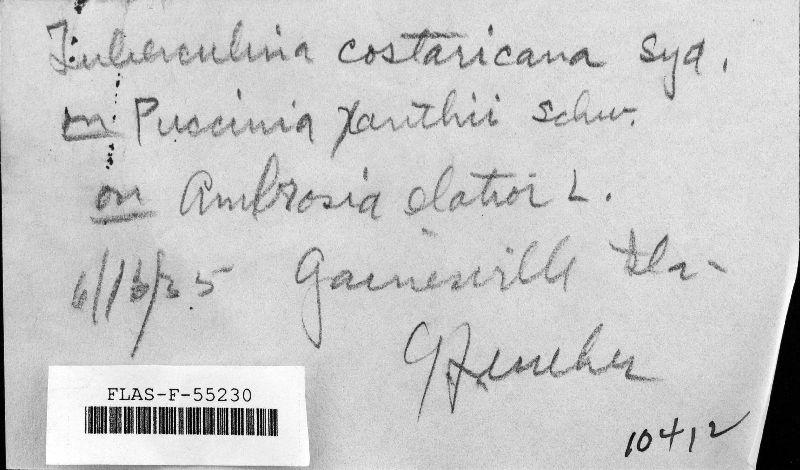 Tuberculina costaricana Syd.
on Puccinia Xanthii Schw.
on Ambrosia elatior L.
6/13/35 Gainesville Fla-
FLAS-F-55230
10412